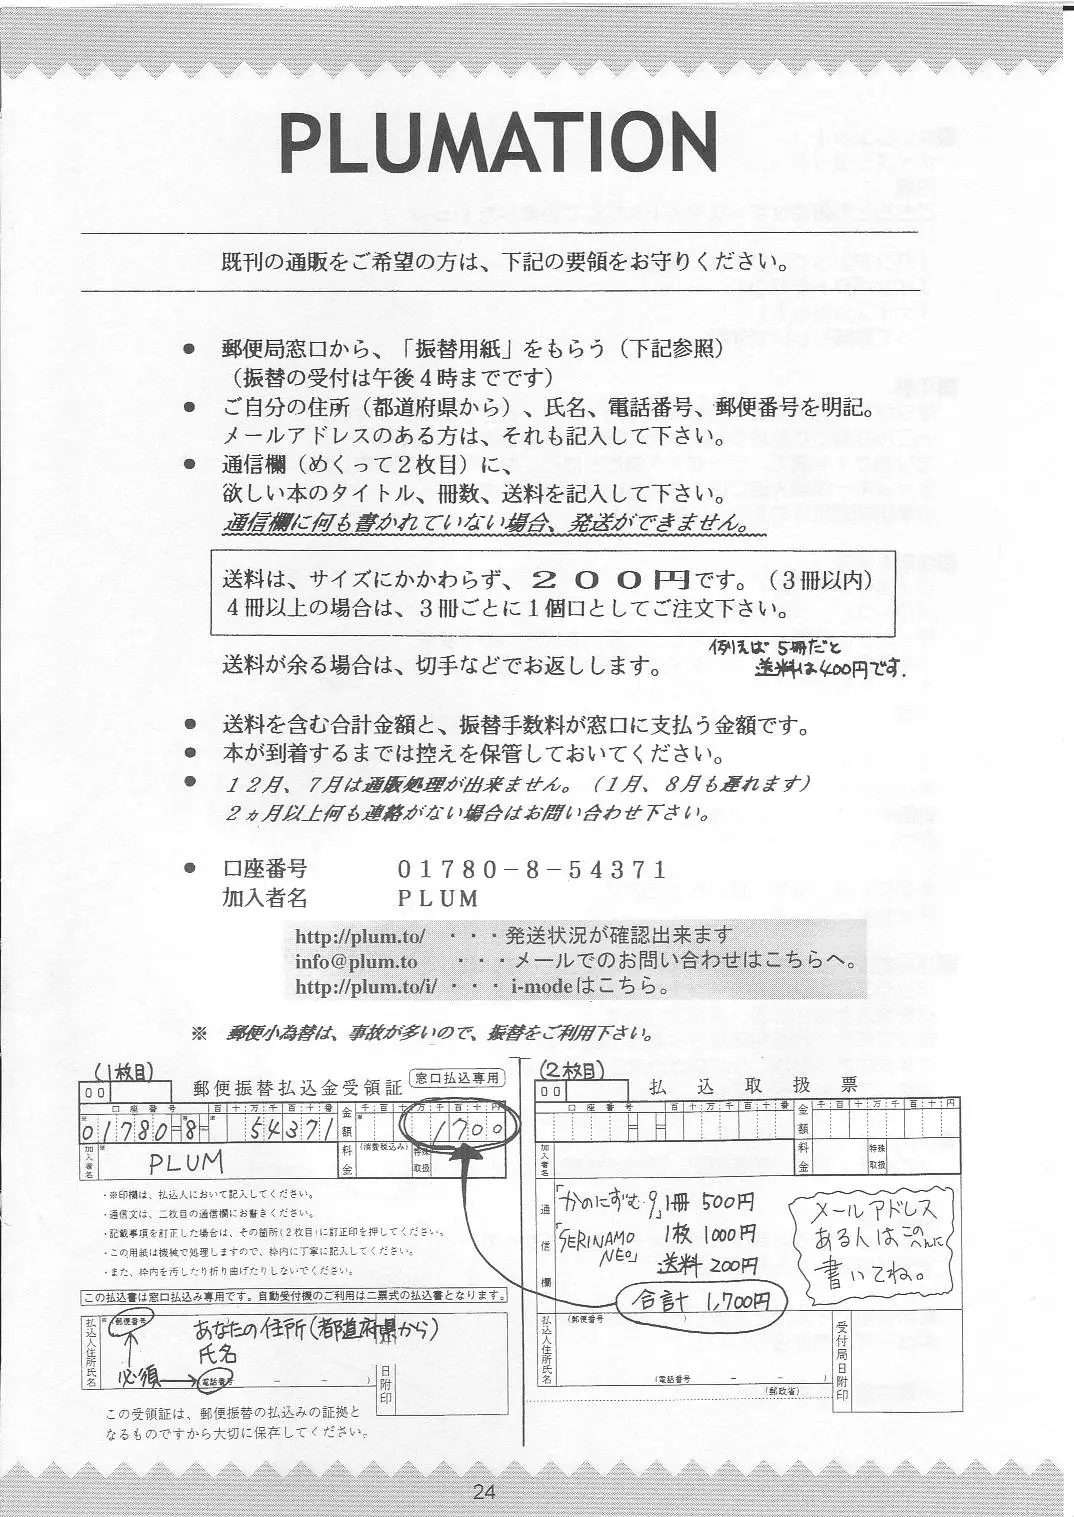 PLUMATION
既刊の通販をご希望の方は、下記の要領をお守りください。
● 郵便局窓口から、「振替用紙」をもらう（下記参照）
（振替の受付は午後４時までです）
● ご自分の住所（都道府県から）、氏名、電話番号、郵便番号を明記。
メールアドレスのある方は、それも記入して下さい。
● 通信欄（めくって２枚目）に、
欲しい本のタイトル、冊数、送料を記入して下さい。
通信欄に何も書かれていない場合、発送ができません。
送料は、サイズにかかわらず、２００円です。（３冊以内）
４冊以上の場合は、３冊ごとに１個口としてご注文下さい。
例えば 5冊だと
送料は400円です.
送料が余る場合は、切手などでお返しします。
● 送料を含む合計金額と、振替手数料が窓口に支払う金額です。
● 本が到着するまでは控えを保管しておいてください。
● １２月、７月は通販処理が出来ません。（１月、８月も遅れます）
２ヵ月以上何も連絡がない場合はお問い合わせ下さい。
● 口座番号 ０１７８０－８－５４３７１
加入者名 ＰＬＵＭ
http://plum.to/ ・・・発送状況が確認出来ます
info@plum.to ・・・メールでのお問い合わせはこちらへ。
http://plum.to/i/ ・・・ i-modeはこちら。
※ 郵便小為替は、事故が多いので、振替をご利用下さい。
(1枚目)
00
郵便振替払込金受領証 窓口払込専用
口座番号 百十万千百十番 金額 千百十万千百十円
01780=8= 54371 1700
加入者名 PLUM 料金 (消費税込み) 特殊取扱
・※印欄は、払込人において記入してください。
・通信文は、二枚目の通信欄にお書きください。
・記載事項を訂正した場合は、その箇所(2枚目)に訂正印を押してください。
・この用紙は機械で処理しますので、枠内に丁寧に記入してください。
・また、枠内を汚したり折り曲げたりしないでください。
この払込書は窓口払込み専用です。自動受付機のご利用は二票式の払込書となります。
払込人住所氏名 ※ (郵便番号)
あなたの住所(都道府県から)
氏名
必須→(電話番号 － － )
日附印
この受領証は、郵便振替の払込みの証拠と
なるものですから大切に保存してください。
(2枚目)
00
払込取扱票
口座番号 百十万千百十番 金額 千百十万千百十円
加入者名 料金 特殊取扱
通信欄
「かのにずむ9」1冊 500円
「SERINAMO NEO」 1枚 1000円
送料 200円
合計 1,700円
メールアドレス
ある人はこのへんに
書いてね。
払込人住所氏名 (郵便番号 )
(電話番号 － － )
(郵政省)
受付局日附印
24